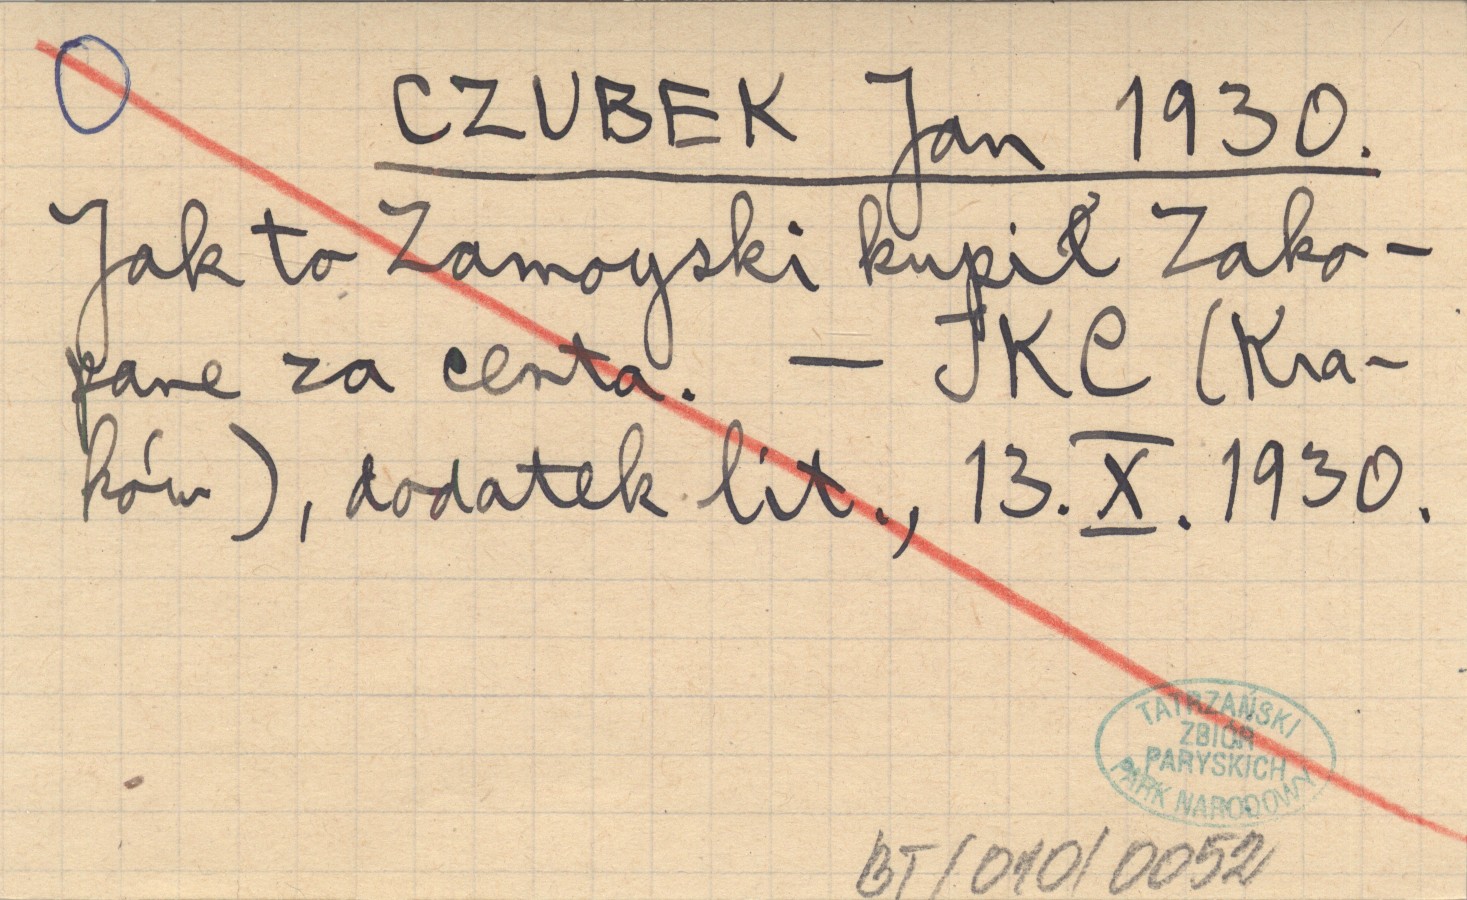 CZUBEK Jan 1930.
Jak to Zamoyski kupił Zako-
pane za centa. — JKC (Kra-
ków), dodatek lit., 13.X.1930.
TATRZAŃSKI
ZBIÓR
PARYSKICH
PARK NARODOWY
BT/010/0052